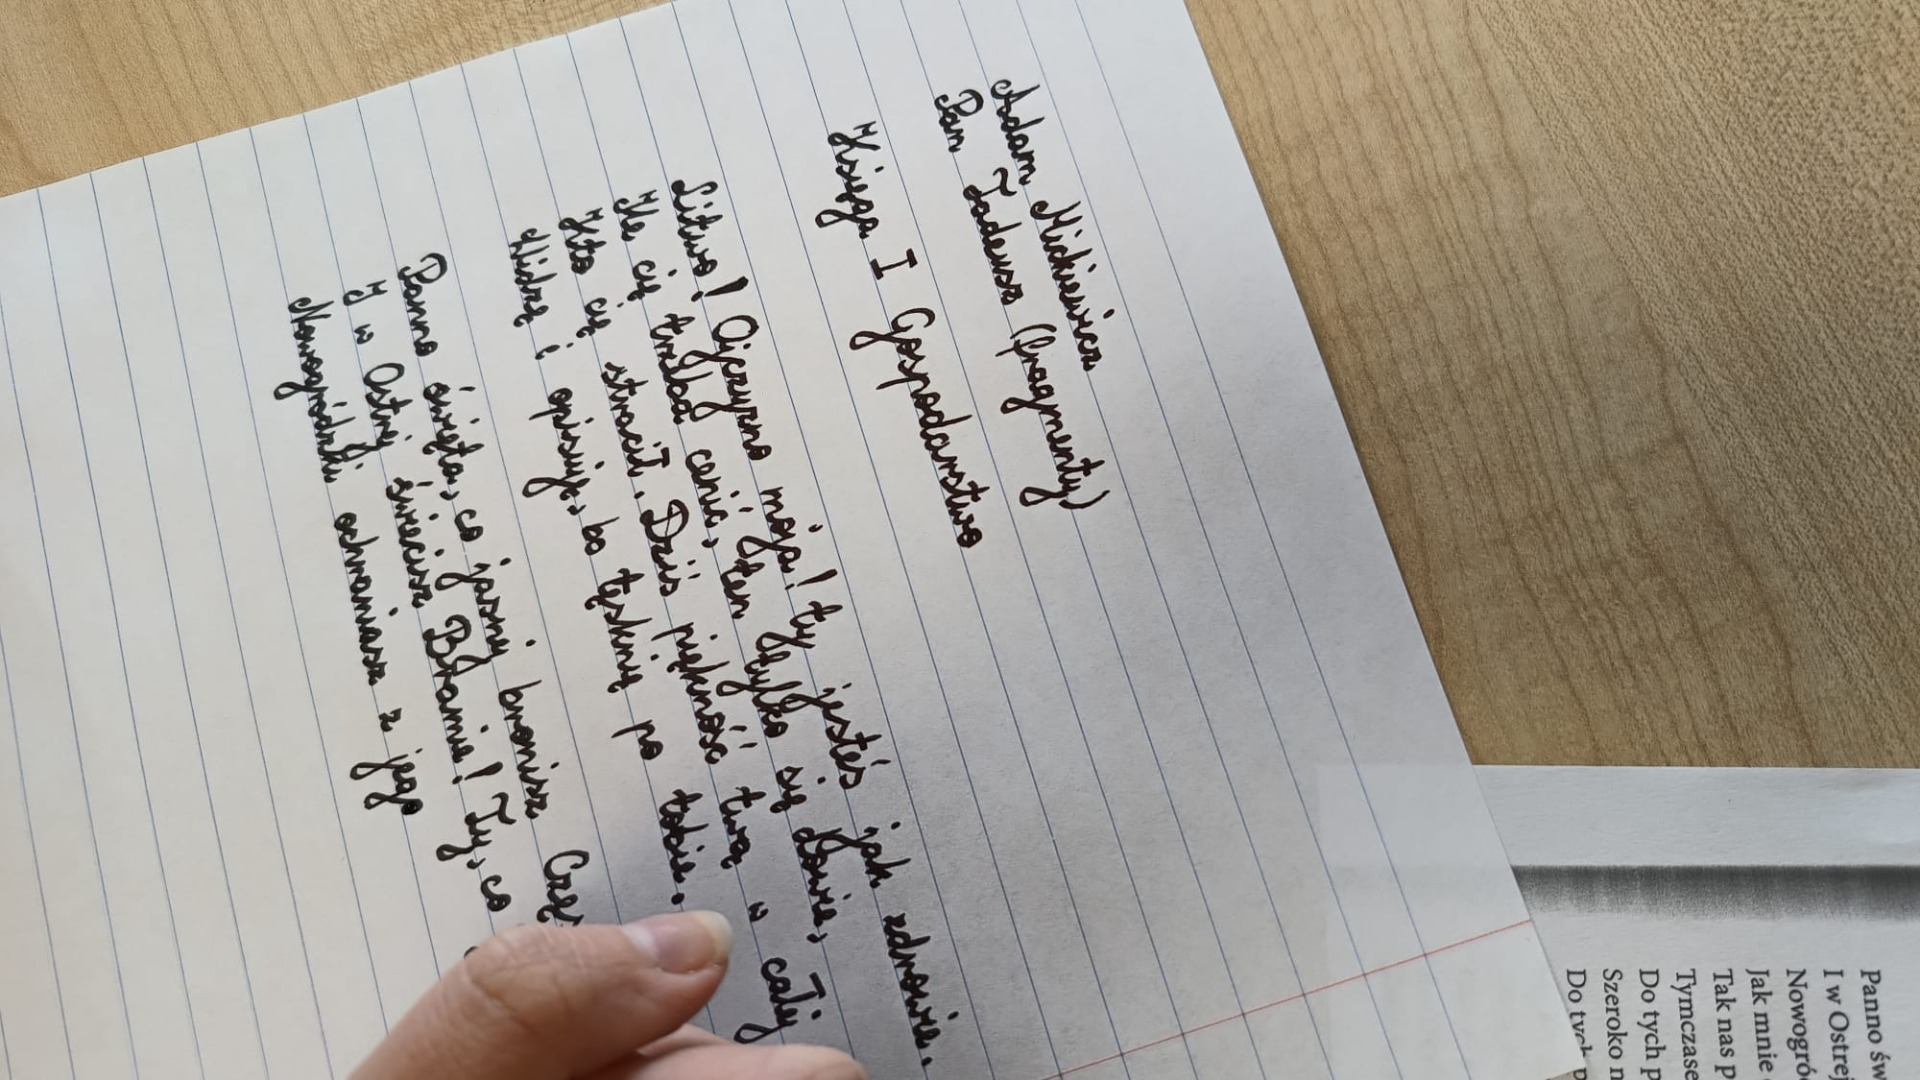 Adam Mickiewicz
Pan Tadeusz (fragmenty)
Księga I Gospodarstwo
Litwo! Ojczyzno moja! ty jesteś jak zdrowie.
Ile cię trzeba cenić, ten tylko się dowie,
Kto cię stracił. Dziś piękność twą w całej
Widzę i opisuję, bo tęsknię po tobie.
Panno święta, co jasnej bronisz
I w Ostrej świecisz Bramie! Ty, co
Nowogródzki ochraniasz z jego
Panno
I w Ostrej
Jak mnie
Tak nas
Do tych
Szeroko
Do tych